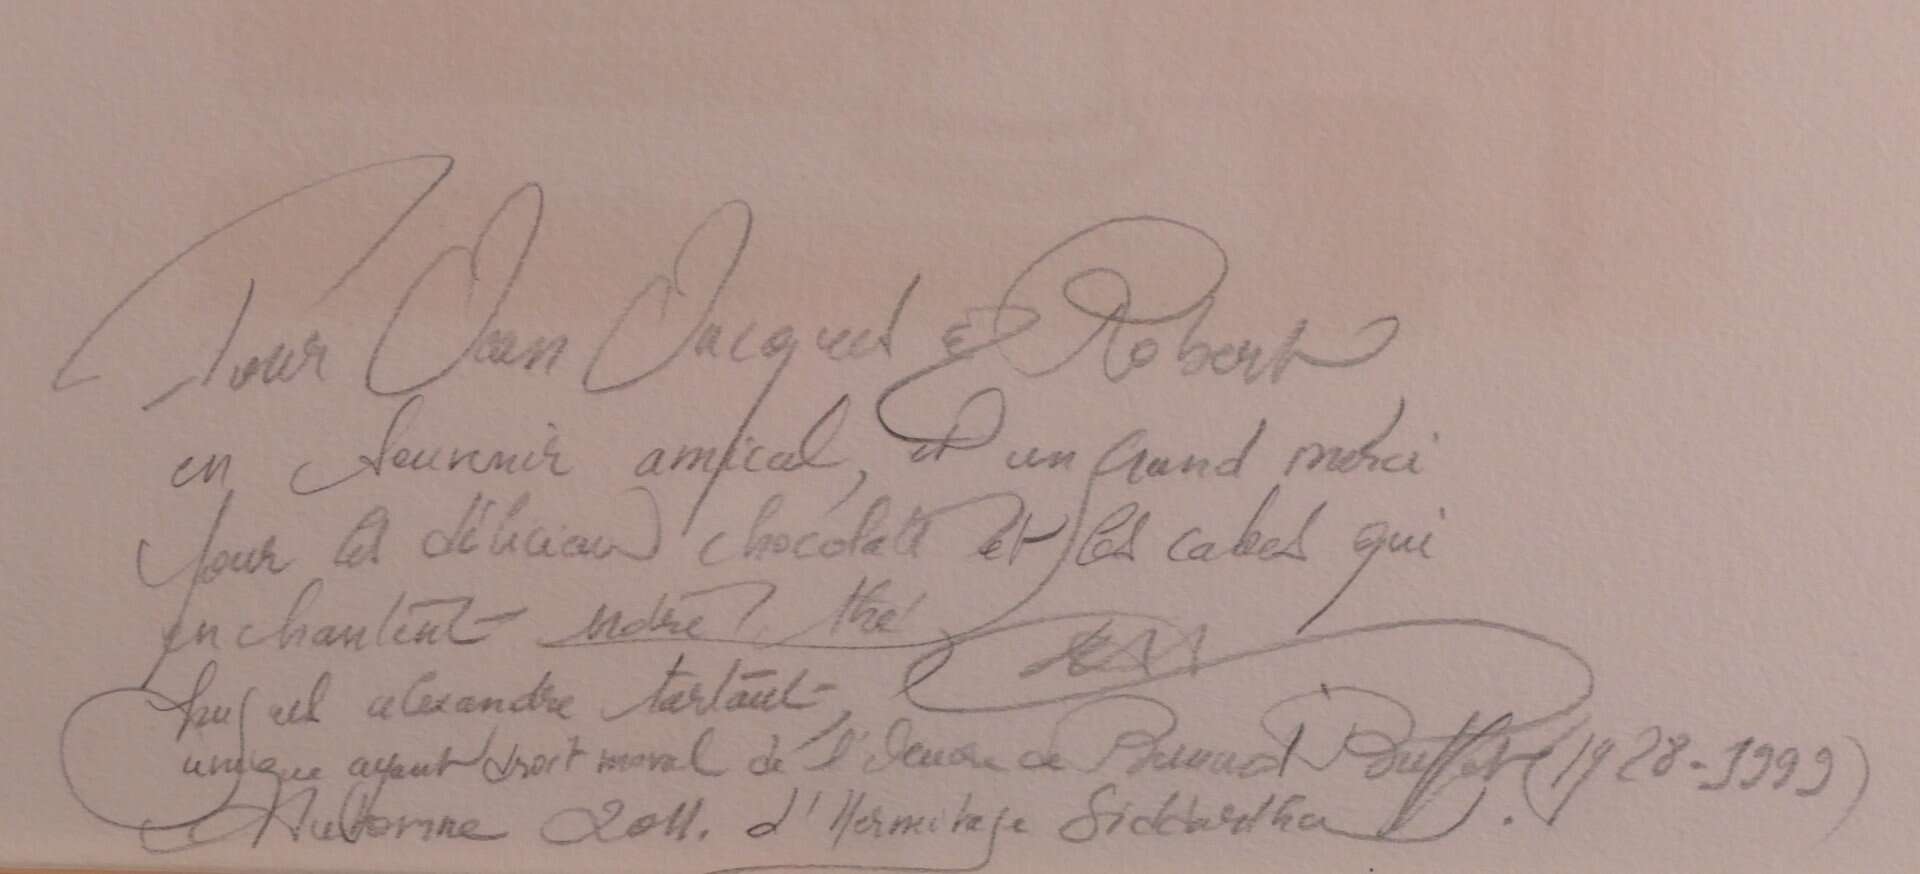 Pour Jean Jacques & Robert
en souvenir amical, et un grand merci
pour les délicieux chocolats et les cakes qui
enchantent notre thé
alexandre tartaut,
unique ayant droit moral de l'œuvre de Bernard Buffet (1928-1999)
Automne 2011. d'Hermitage Siddartha.